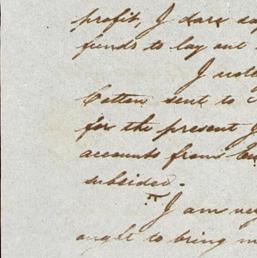 profit, I dare say
funds to lay out
I note
Cotton sent to
for the present I
accounts from
subsided.
I am very
ought to bring